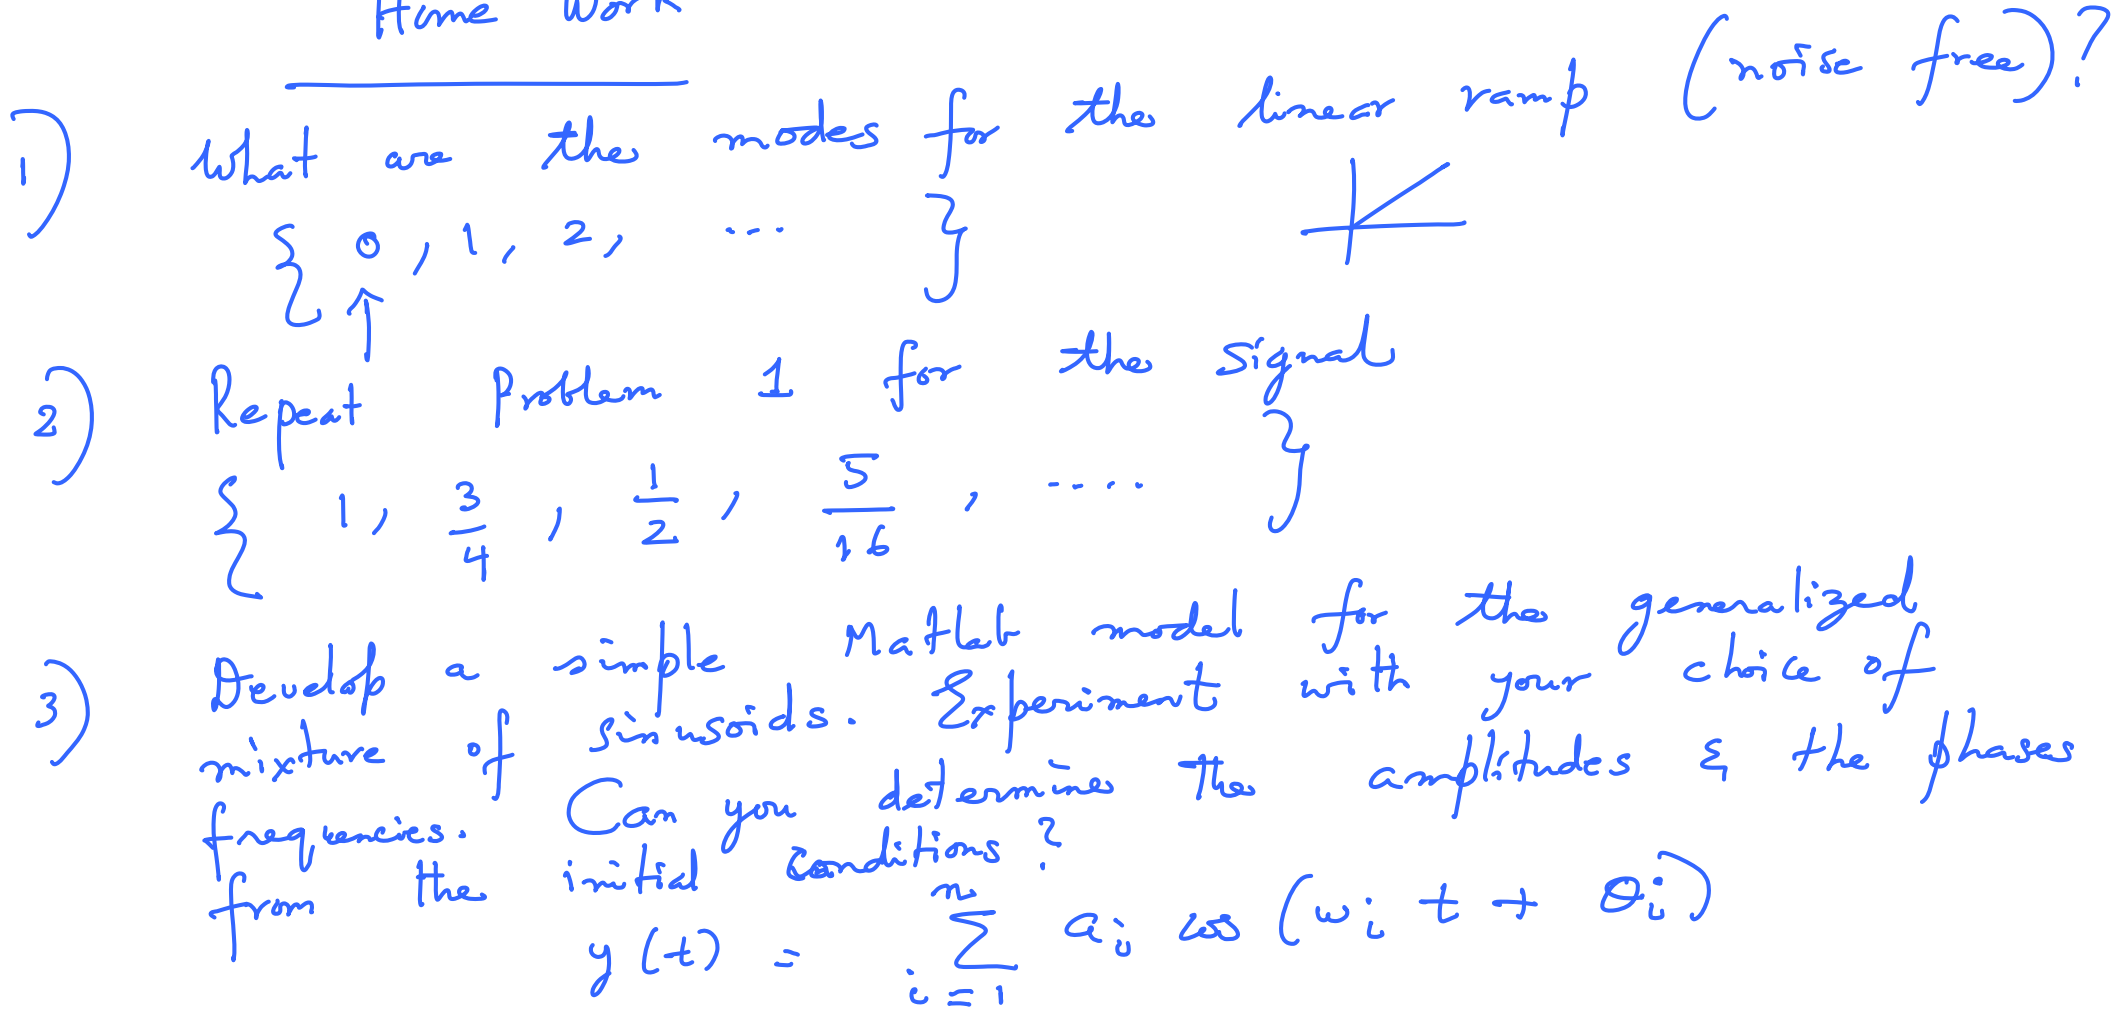 Home Work
1) What are the modes for the linear ramp (noise free)?
{ 0, 1, 2, ... }
↑
2) Repeat Problem 1 for the signal
{ 1, 3/4, 1/2, 5/16, .... }
3) Develop a simple Matlab model for the generalized
mixture of sinusoids. Experiment with your choice of
frequencies. Can you determines the amplitudes & the phases
from the initial conditions?
y(t) = \sum_{i=1}^{n} a_i cos(w_i t + θ_i)